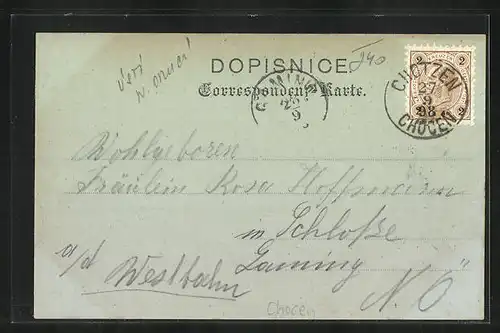 DOPISNICE.
Correspondenz-Karte.
340
2 2
2
CHOTZEN
27
9
98
CHOCEŇ
GAMING
28
9
Wohlgeboren
Fräulein Rosa Hoffmann
in Schloße
a/d Gaming
Westbahn N. Ö
Choceň